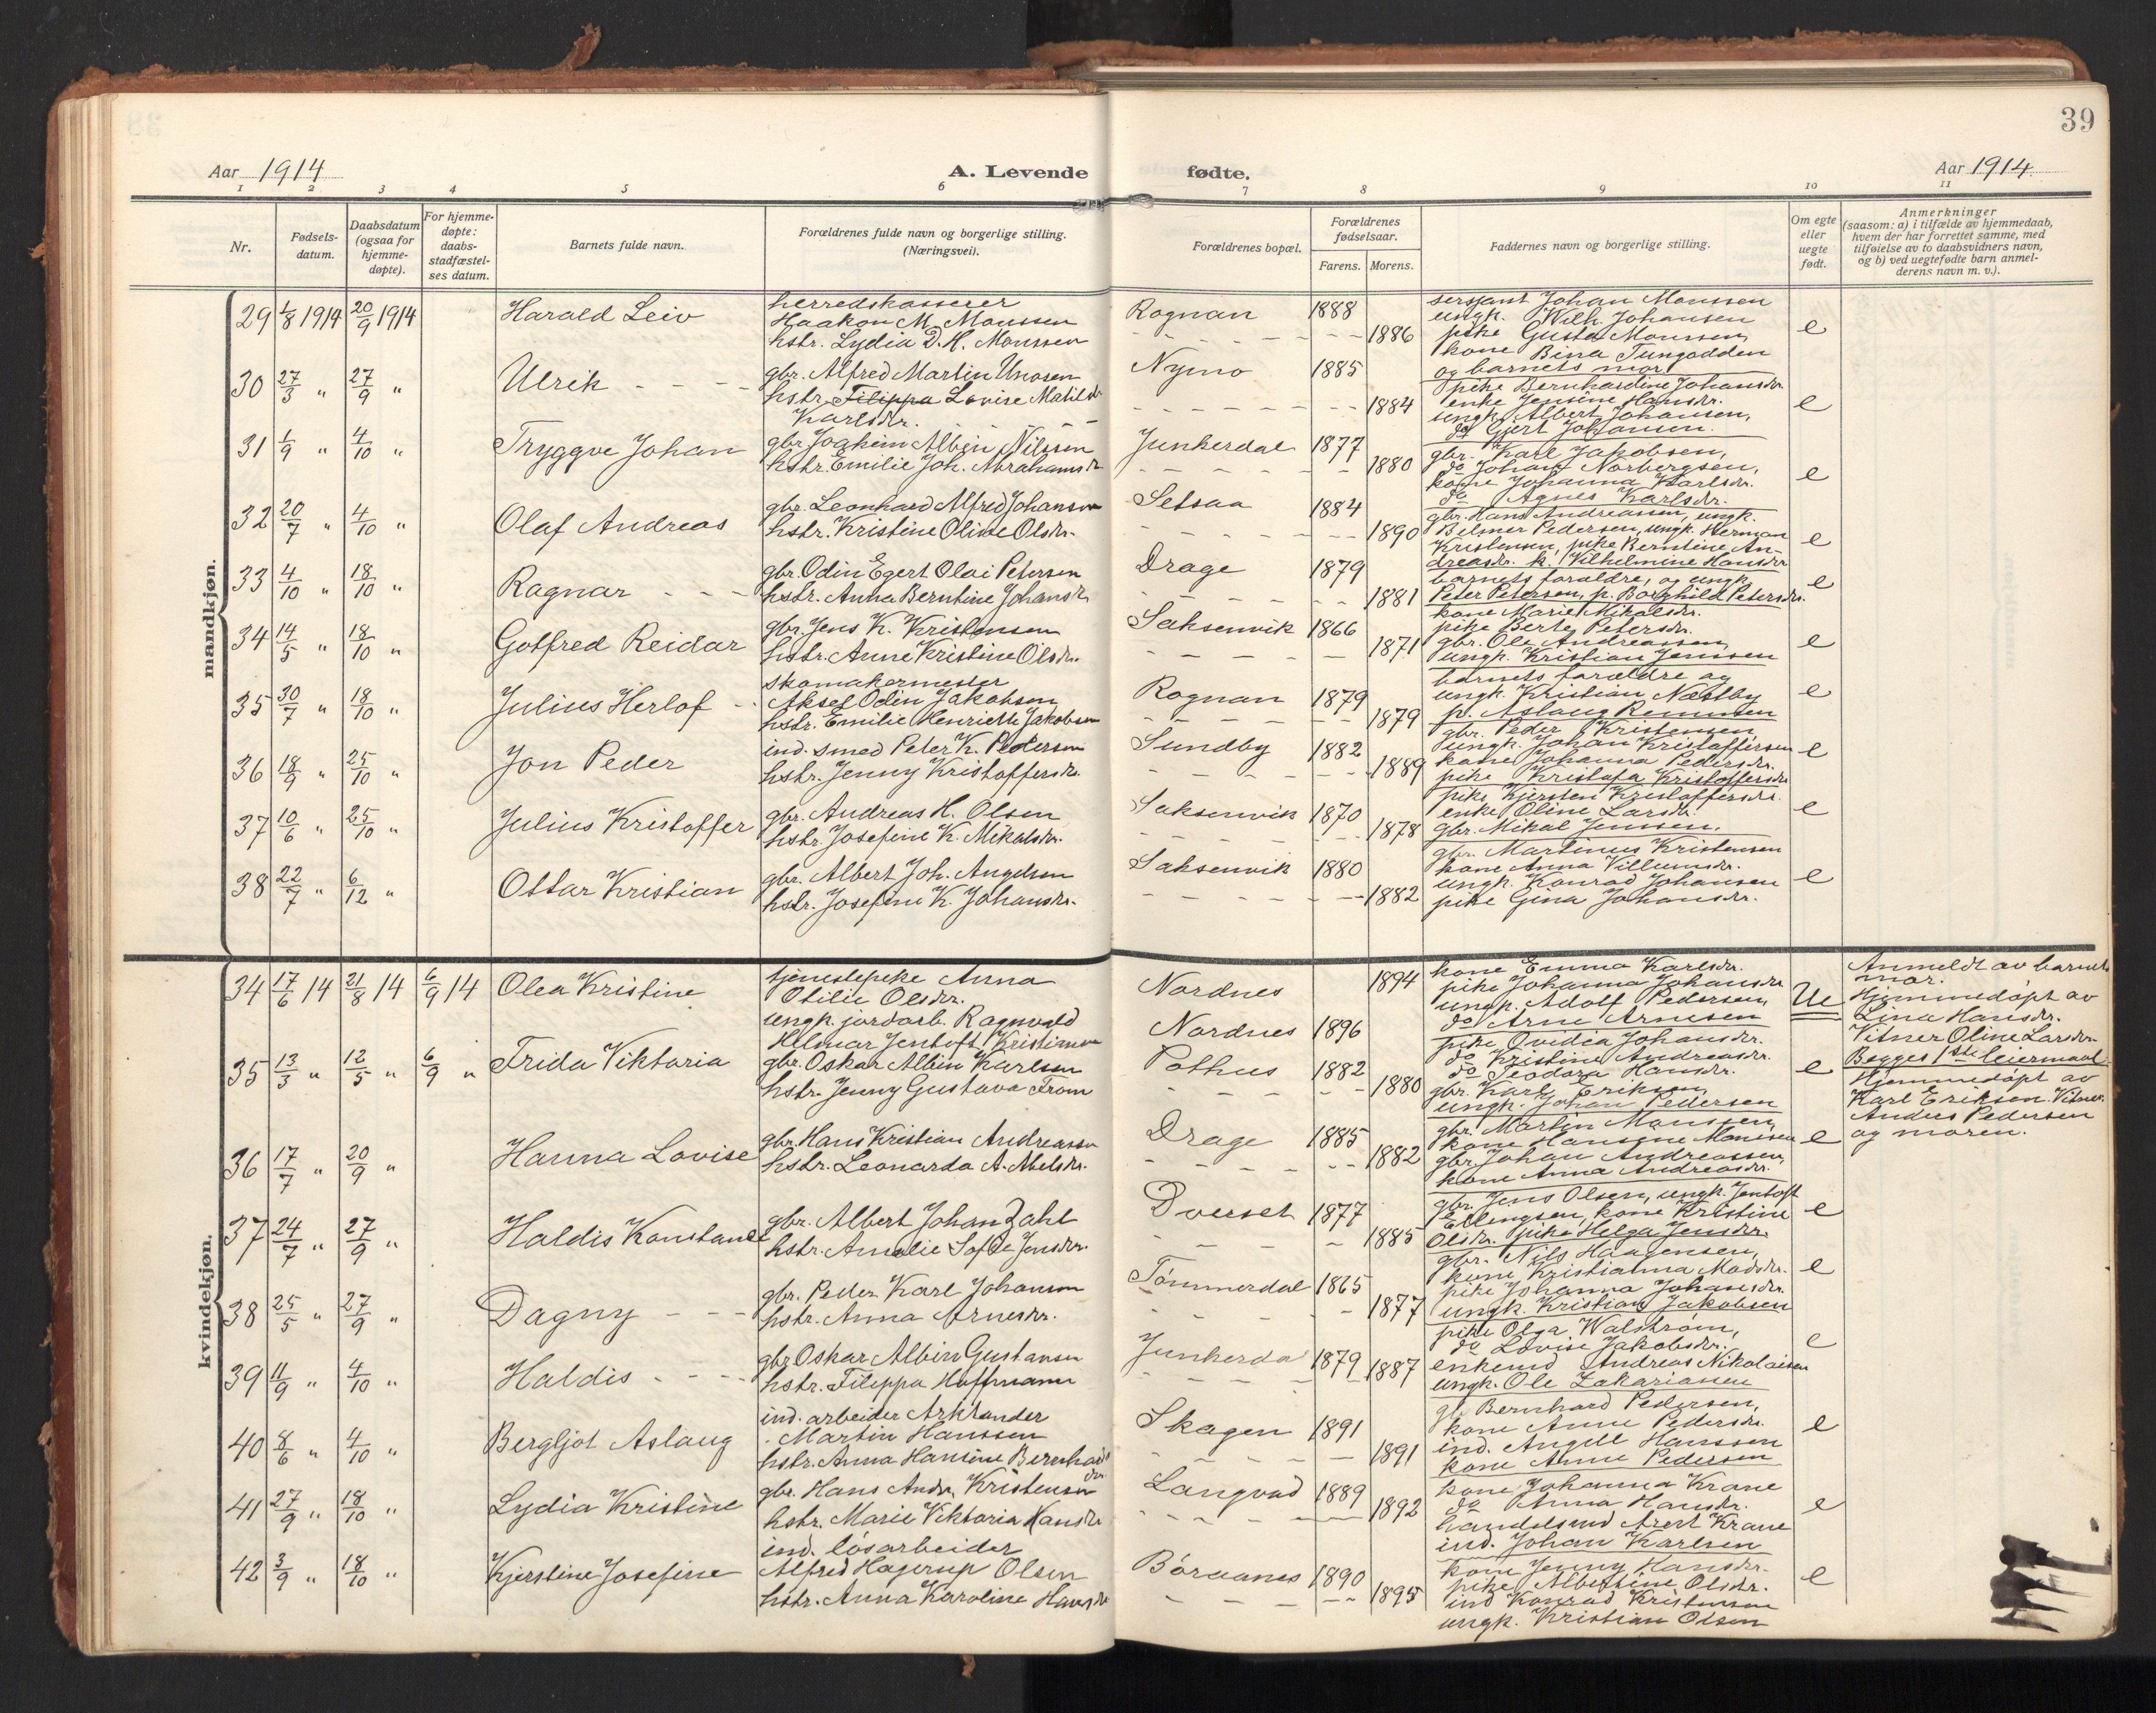 39
Aar 1914
A. Levende
fødte.
Aar 1914.
1 2 3 4 5 6 7 8 9 10 11
Nr.
Fødsels-
datum.
Daabsdatum
(ogsaa for
hjemme-
døpte).
For hjemme-
døpte:
daabs-
stadfæstel-
ses datum.
Barnets fulde navn.
Forældrenes fulde navn og borgerlige stilling.
(Næringsvei).
Forældrenes bopæl.
Forældrenes
fødselsaar.
Farens. Morens.
Faddernes navn og borgerlige stilling.
Om egte
eller
uegte
født.
Anmerkninger
(saasom: a) i tilfælde av hjemmedaab,
hvem der har forrettet samme, med
tilføielse av to daabsvidners navn,
og b) ved uegtefødte barn anmel-
derens navn m. v.).
mandkjøn.
29 1/8 1914 20/9 1914 Harald Leiv
herredskasserer
Haakon M. Monssen
hstr. Lydia D. H. Monssen
Rognan 1888
1886
sersjant Johan Monssen
ungk. Wilh. Johansen
pike Gusta Monssen,
kone Bina Tungodden
og barnets mor.
e
30 27/3 " 27/9 " Ulrik
gbr. Alfred Martin Unosen
hstr. Filippa Lovise Matilde
Karlsdr.
Nymo 1885
1884
pike Bernhardine Johansdr.
enke Jensine Hansdr.
ungk. Albert Johansen,
do Gjert Johansen.
e
31 1/9 " 4/10 " Tryggve Johan
gbr. Joakim Albin Nilssen
hstr. Emilie Joh. Abrahamsdr
Junkerdal 1877
1880
gbr. Karl Jakobsen,
do Johan Norbergsen,
kone Johanna Karlsdr.
do Agnes Karlsdr.
e
32 20/7 " 4/10 " Olaf Andreas
gbr. Leonhard Alfred Johansen
hstr. Kristine Olivie Olsdr.
Setsaa 1884
1890
gbr. Hans Andreassen, ungk.
Pedersen, ungk. Herman
Kristensen, pike Berntine An-
dreasdr. k. Vilhelmine Hansdr
e
33 4/10 " 18/10 " Ragnar
gbr. Odin Egert Olai Petersen
hstr. Anna Berntine Johansdr
Drage 1879
1881
barnets forældre, og ungk.
Peter Petersen, p. Borghild Petersdr.
e
34 14/5 " 18/10 " Gotfred Reidar
gbr. Jens K. Kristensen
hstr. Anne Kristine Olsdr.
Saksenvik 1866
1871
kone Marie Mikalsdr.
pike Berte Petersdr.
gbr. Ole Andreassen
ungk. Kristian Jenssen
e
35 30/7 " 18/10 " Julius Herlof
skomakermester
Aksel Odin Jakobsen
hstr. Emilie Henriette Jakobsen
Rognan 1879
1879
barnets forældre og
ungk. Kristian Næstby
p. Aslaug
e
36 18/9 " 25/10 " Jon Peder
ind. smed Peter K. Pedersen
hstr. Jenny Kristoffersdr.
Sundby 1882
1889
gbr. Peder Kristensen
ungk. Johan Kristoffersen
kone Johanna Pedersdr.
pike Kristofa Kristoffersdr
e
37 10/6 " 25/10 " Julius Kristoffer
gbr. Andreas H. Olsen
hstr. Josefine K. Mikalsdr.
Saksenvik 1870
1878
pike Kjersten Kristoffersdr.
enke Oline Larsdr.
gbr. Mikal Jenssen.
e
38 22/7 " 6/12 " Ottar Kristian
gbr. Albert Joh. Angelsen
hstr. Josefine K. Johansdr.
Saksenvik 1880
1882
gbr. Martinus Kristensen
kone Anna Villumsdr.
ungk. Konrad Johansen
pike Gina Johansdr.
e
kvindekjøn.
34 17/6 14 21/8 14 6/9 14 Olea Kristine
tjenestepike Anna
Otilie Olsdr.
ungk. jordarb. Ragnvald
Helmar Jentoft Kristiansen
Nordnes 1894
Nordnes 1896
kone Emma Karlsdr.
pike Johanna Johansdr
ungk. Adolf Pedersen,
do Arne Arnesen
Ue
Anmeldt av barnets
mor.
Hjemmedøpt av
Lina Hansdr.
Vitner Oline Larsdr.
Begges 1ste leiermaal
35 13/3 " 12/5 " 6/9 " Frida Viktoria
gbr. Oskar Albin Karlsen
hstr. Jenny Gustava From
Pothus 1882
1880
pike Ovidia Johansdr.
do Kristine Andreasdr.
do Teodora Hansdr.
gbr. Karl Eriksen,
ungk. Johan Pedersen
e
Hjemmedøpt av
Karl Eriksen. Vitner
Anders Pedersen
og moren.
36 17/7 " 20/9 " Hanna Lovise
gbr. Hans Kristian Andreassen
hstr. Leonarda A. Abelsdr.
Drage 1885
1882
gbr. Martin Monssen,
kone Hansine Monssen
gbr. Johan Andreassen,
kone Anna Andreasdr.
e
37 24/7 " 27/9 " Haldis Konstanse
gbr. Albert Johan Zahl
hstr. Amalie Sofie Jensdr.
Dverset 1877
1885
gbr. Jens Olsen, ungk. Jentoft
Ellingsen, kone Kristine
Olsdr. pike Helga Jensdr.
e
38 25/5 " 27/9 " Dagny
gbr. Peder Karl Johansen
hstr. Anna Arnesdr.
Tømmerdal 1865
1877
gbr. Nils Haagensen,
kone Kristianna Madsdr.
pike Johanna Johansdr.
ungk. Kristian Jakobsen
e
39 11/9 " 4/10 " Haldis
gbr. Oskar Albin Gustavsen
hstr. Filippa Hoffmann
Junkerda 1879
1887
pike Olga Walstrøm,
do Lovise Jakobsdr.
enkemd Andreas Nikolaisen
ungk. Ole Zakariassen
e
40 8/6 " 4/10 " Bergljot Aslaug
ind. arbeider Arktander
Martin Hanssen
hstr. Anna Hansine Bernhards
dr
Skagen 1891
1891
gb. Bernhard Pedersen,
kone Anne Pedersdr.
ind. Angell Hanssen
kone Anne Pedersen
e
41 27/9 " 18/10 " Lydia Kristine
gbr. Hans Andr. Kristensen
hstr. Marie Viktoria Hansdr
Langvad 1889
1892
kone Johanna Krane
do Anna Hansdr.
handelsmd Arert Krane
ind. Johan Karlsen
e
42 3/9 " 18/10 " Kjerstine Josefine
ind. løsarbeider
Alfred Hagerup Olsen
hstr. Anna Karoline Hansdr
Børaanes 1890
1895
kone Jenny Hansdr.
pike Albertine Olsdr.
ind Konrad Kristensen
ungk. Kristian Olsen
e